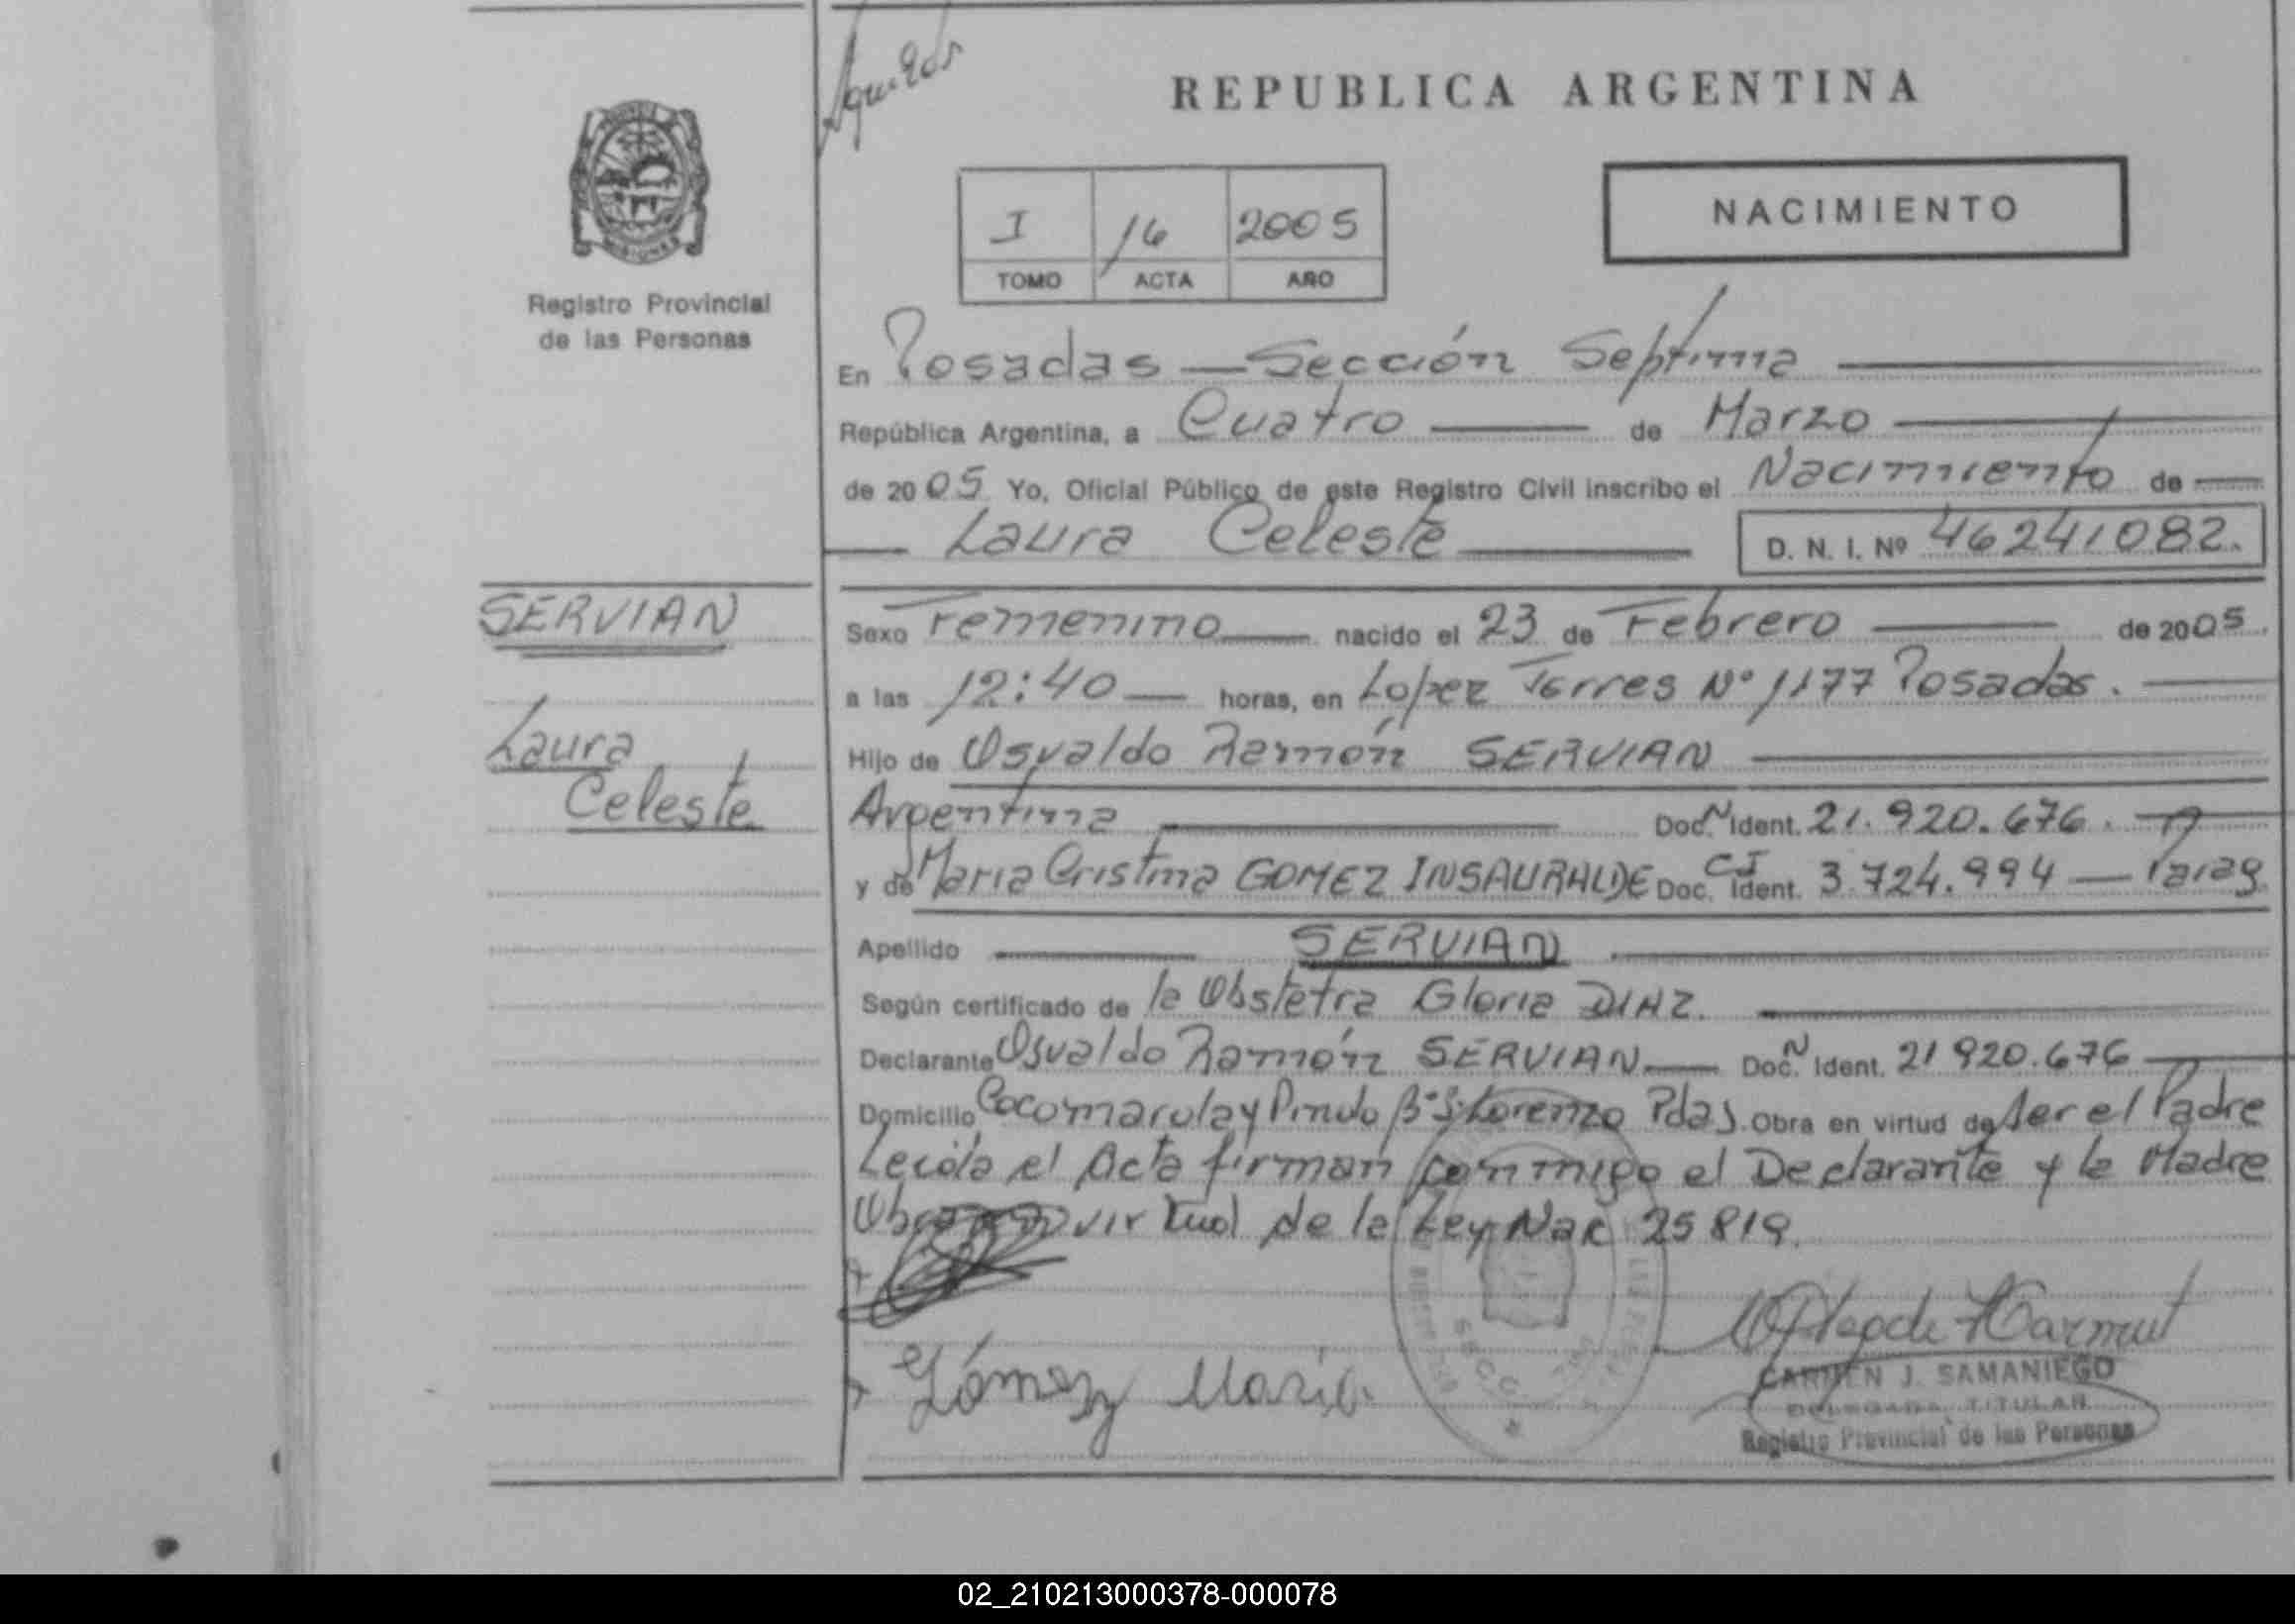 REPUBLICA ARGENTINA
Registro Provincial
de las Personas
I 16 2005
TOMO ACTA AÑO
NACIMIENTO
En Posadas — Sección Septima
República Argentina, a Cuatro — de Marzo
de 2005 Yo, Oficial Público de este Registro Civil inscribo el Nacimiento de
Laura Celeste D. N. I. Nº 46241082.
SERVIAN
Laura
Celeste
Sexo Femenino nacido el 23 de Febrero de 2005.
a las 12:40 — horas, en Lopez Torres Nº 1177 Posadas.
Hijo de Osvaldo Ramón SERVIAN
Argentina Doc. N Ident. 21.920.676.
y de Maria Cristina GOMEZ INSAURALDE Doc. CI Ident. 3.724.994 — Parag
Apellido SERVIAN
Según certificado de la Obstetra Gloria DIAZ.
Declarante Osvaldo Ramón SERVIAN — Doc. N Ident. 21 920.676
Domicilio Cocomarola y Pindo Bº S. Lorenzo Pdas. Obra en virtud de ser el Padre
Leída el Acta firman conmigo el Declarante y la Madre
Obra en virtud de la Ley Nac 25819.
Gómez María
CARMEN J. SAMANIEGO
DELEGADA TITULAR
Registro Provincial de las Personas
02_210213000378-000078